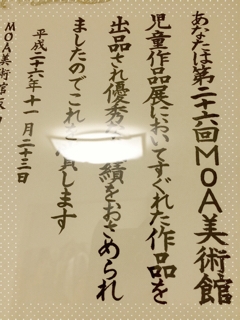 あなたは第二十六回MOA美術館
児童作品展においてすぐれた作品を
出品され優秀 績をおさめられ
ましたのでこれ 賞します
平成二十六年十一月二十三日
MOA美術館